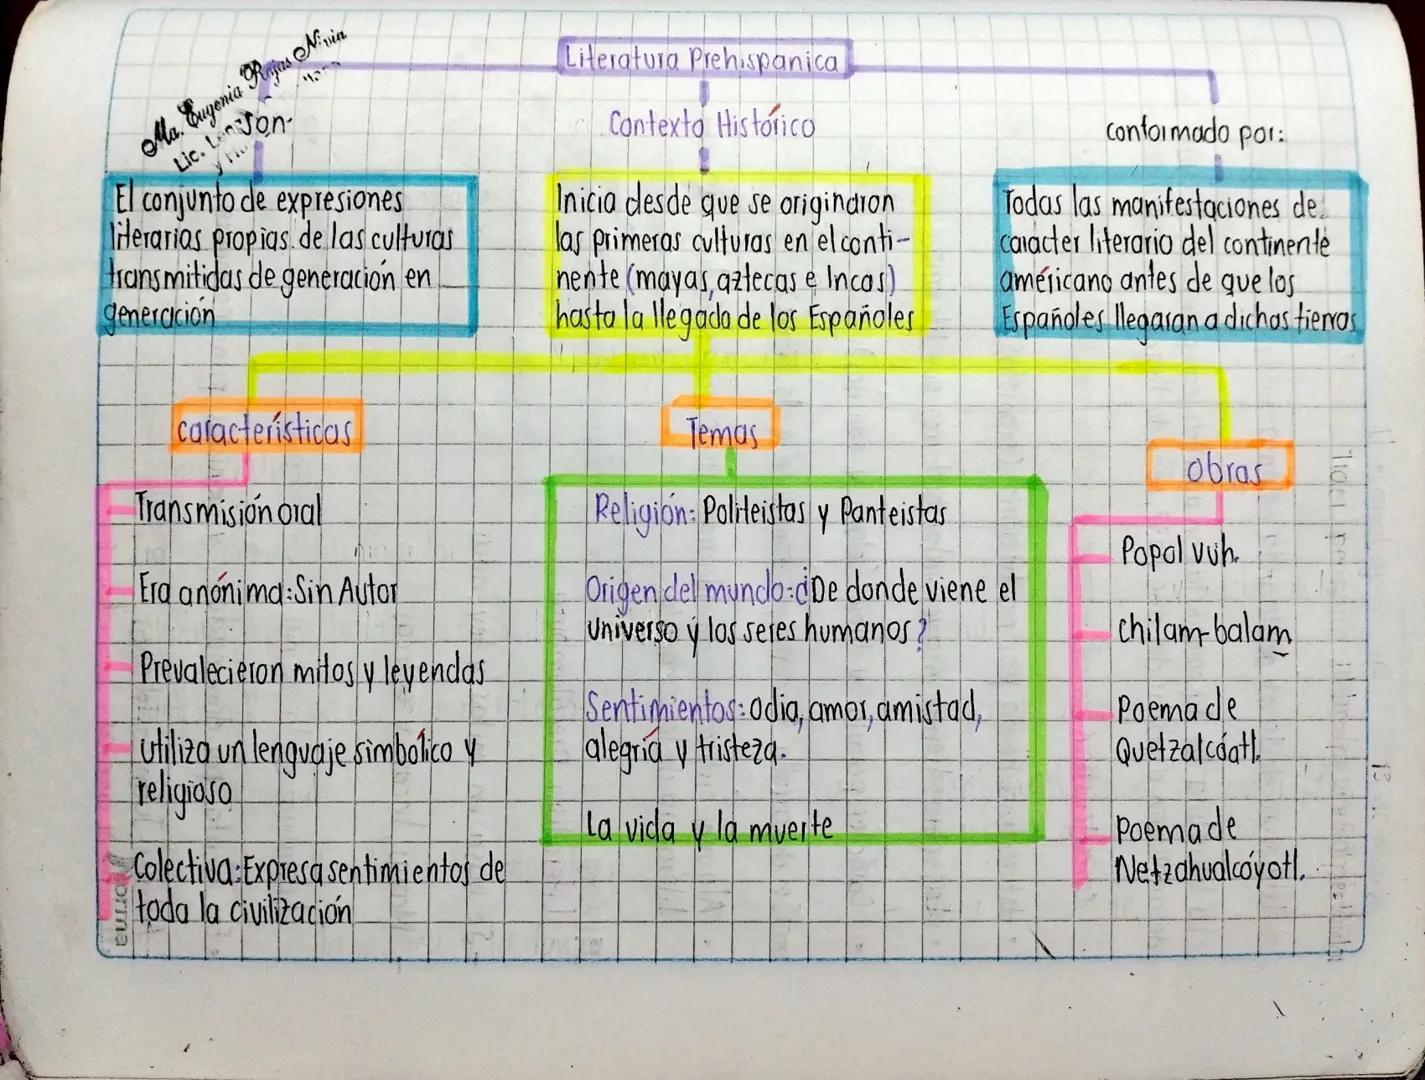 Ma. Eugenia Rojas Nivia
Lic.
Literatura Prehispanica
son-
Contexto Histórico
conformado por:
El conjunto de expresiones
literarias propias de las culturas
transmitidas de generación en
generación
Inicia desde que se originaron
las primeras culturas en el conti-
nente (mayas, aztecas e Incas)
hasta la llegada de los Españoles
Todas las manifestaciones de
caracter literario del continente
américano antes de que los
Españoles llegaran a dichas tierras
características
Transmisión oral
Era anónima: Sin Autor
Prevalecieron mitos y leyendas
utiliza un lenguaje simbólico y
religioso
Colectiva: Expresa sentimientos de
toda la civilización
Temas
Religión: Politeistas y Panteistas
Origen del mundo: ¿De donde viene el
universo y los seres humanos?
Sentimientos: odio, amor, amistad,
alegría y tristeza.
La vida y la muerte
Obras
Popol vuh.
chilam-balam
Poema de
Quetzalcóatl.
Poema de
Netzahualcóyotl.
Norma